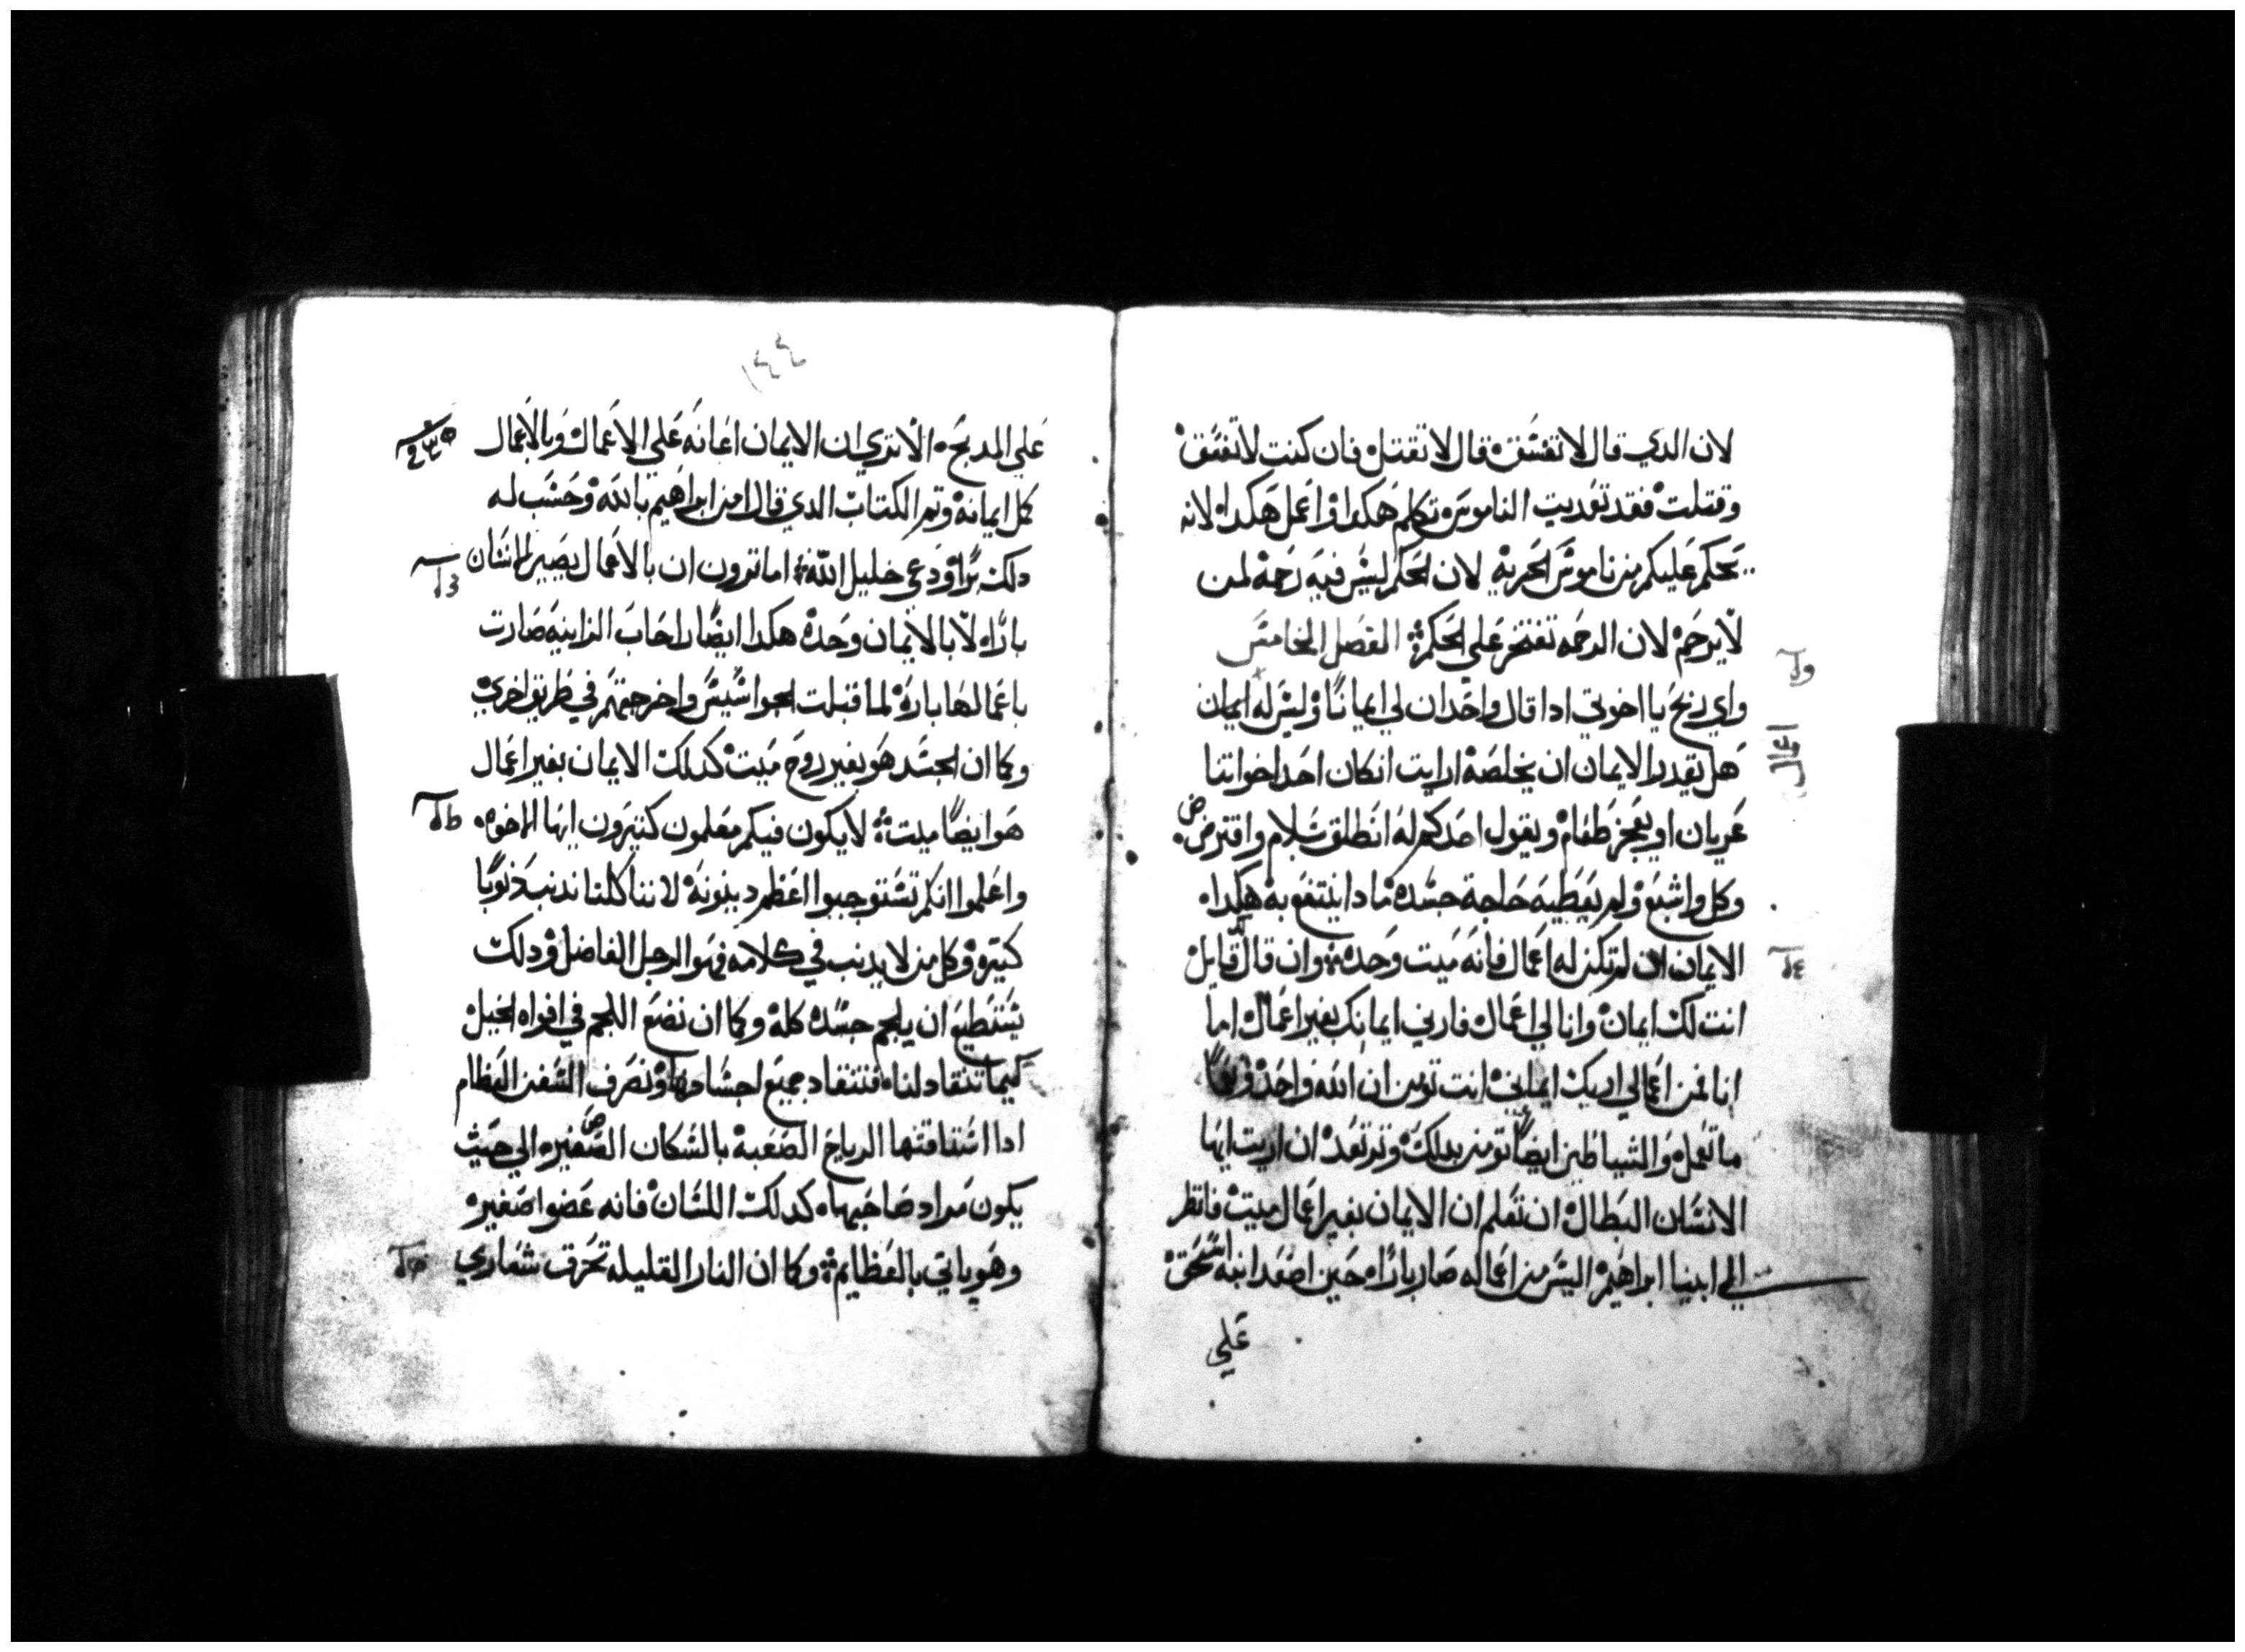 لان الدي قال لا تفسق قال لا تقتل فان كنت لا تفسق
وقتلت فقد تعديت الناموس تكلم هكدا واعمل هكدا لانه
يحكم عليكم من ناموس الحريه لان الحكم ليس فيه رحمة لمن
لا يرحم لان الرحمه تفتخر علي الحكم الفصل الخامس
واي ربح يا اخوتي ادا قال واحد ان لي ايمانا وليس له ايمان
هل يقدر الايمان ان يخلصه ارايت ان كان احد اخواتنا
عريان او يعجز طعام ويقول احدكم له انطلق بسلام واقترض
وكل واشبع ولم يعطيه حاجة جسده مادا ينتفع به هكدا
الايمان ان لم تكن له اعمال فانه ميت وحده وان قال قايل
انت لك ايمان وانا لي اعمال فاريني ايمانك بغير اعمال اما
انا فمن اعمالي اريك ايماني انت تومن ان الله واحد ونعما
ما تعمل والشياطين ايضا تومن بدلك وترتعد ان اريت ايها
الانسان البطال ان تعلم ان الايمان بغير اعمال ميت فانظر
الي ابينا ابراهيم اليس من اعماله صار بارا حين اصعد ابنه اسحق
علي
اعمال
علي المدبح الا تري ان الايمان اعانه علي الاعمال وبالاعمال
كمل ايمانه وتم الكتاب الدي قال امن ابراهيم بالله وحسب له
دلك برا ودعي خليل الله اما ترون ان بالاعمال يصير الانسان
بارا لا بالايمان وحده هكدا ايضا راحاب الزانيه صارت
باعمالها باره لما قبلت الجواسيس واخرجتهم في طريق اخري
وكما ان الجسد هو بغير روح ميت كدلك الايمان بغير اعمال
هو ايضا ميت لا يكون فيكم معلمون كتيرون ايها الاخوه
واعلموا انكم تستوجبوا اعظم دينونة لاننا كلنا ندنب دنوبا
كتيره وكل من لا يدنب في كلامه فهو الرجل الفاضل ودلك
يستطيع ان يلجم جسده كله وكما ان نضع اللجم في افواه الخيل
كيما تنقاد لنا فتنقاد جميع اجسادها ونصرف السفن العظام
ادا استاقتها الرياح الصعبة بالسكان الصغيره الي حيت
يكون مراد صاحبها كدلك اللسان فانه عضوا صغيره
وهو ياتي بالعظايم وكما ان النار القليله تحرق شعاري